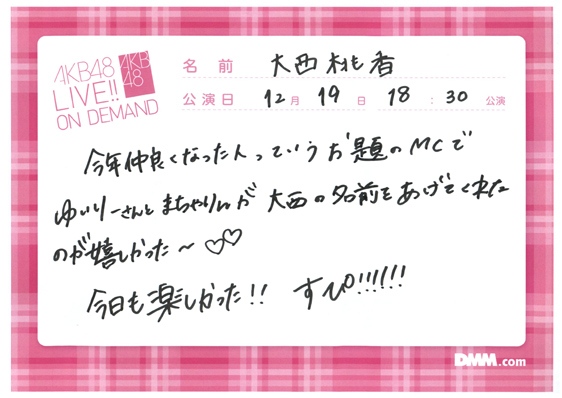 AKB48
LIVE!!
ON DEMAND
AKB
48
名前 大西桃香
公演日 12月19日 18:30 公演
今年仲良くなった人っていうお題のMCで
ゆいりーさんとまちゃりんが 大西の名前をあげてくれた
のが嬉しかった〜♡♡
今日も楽しかった!! すぴ!!!!!!
DMM.com